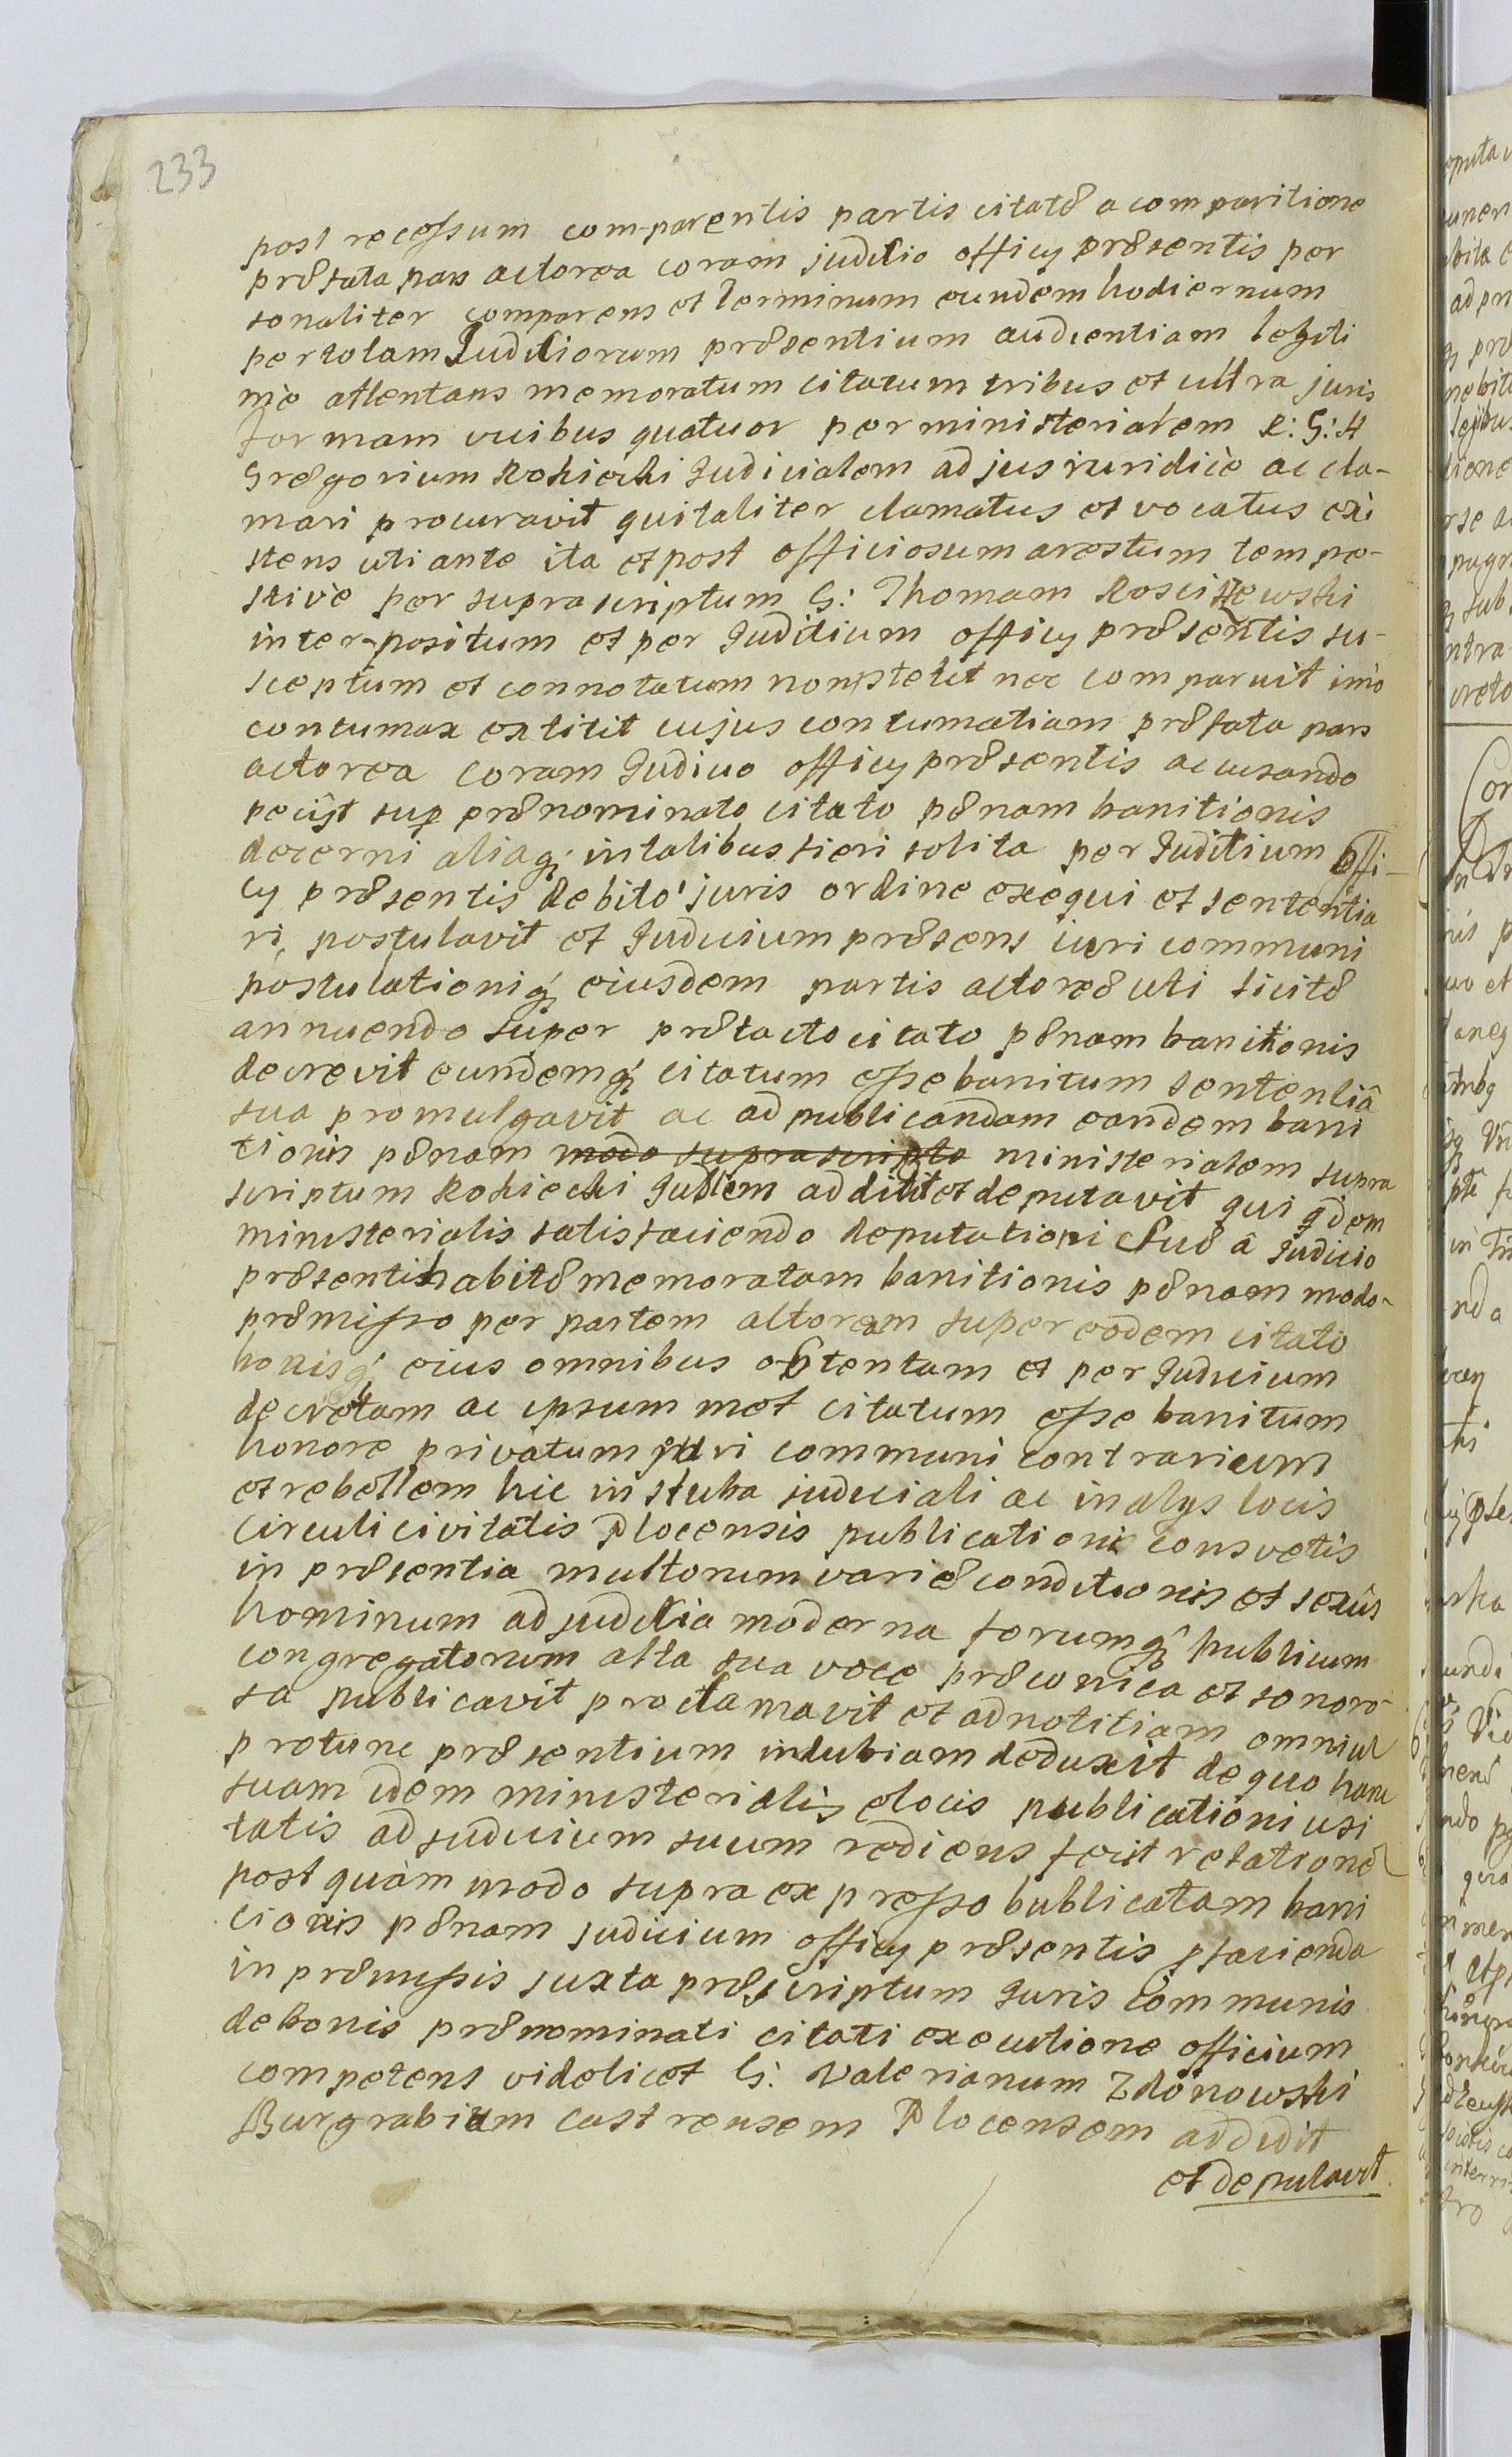 233
post recessum comparentis partis citatæ a comparitione
præfata pars actorea coram juditio officy præsentis per
sonaliter comparens et terminum eundem hodiernum
per totam Juditiorum præsentium audientiam legiti
mè attentans memoratum citatum tribus et ultra juris
formam vicibus quatuor per ministerialem R: G: H
Gregorium Rokicki Judicialem ad jus iuridicè ac cla-
mari procuravit qui taliter clamatus et vocatus exi
stens uti ante ita et post officiosum arestum tempe-
stivè per suprascriptum G: Thomam Rosciszewski
interpositum et per Juditium officy præsentis su-
sceptum et connotatum non stetit nec comparuit imò
contumax extitit cujus contumatiam præfata pars
actorea coram Judicio officy præsentis accusando
pecijt sup prænominato citato pænam banitionis
decerni aliaq; in talibus fieri solita per Juditium offi-
cy præsentis debito juris ordine exequi et sententia
ri, postulavit et Judicium præsens iuri communi
postulationiq; eiusdem partis actoreæ uti licitæ
annuendo super prætacto citato pænam banitionis
decrevit eundemq; citatum esse banitum sententiâ
sua promulgavit ac ad publicandam eandem bani
tionis pænam modo suprascripto ministerialem supra
scriptum Rokicki Judlem addidit et deputavit qui qdem
ministerialis satisfaciendo deputationi suæ â Judicio
præsenti habitæ memoratam banitionis pænam modo
præmisso per partem actoream super eodem citato
bonisq; eius omnibus obtentam et per Judicium
decretam ac ipsum met citatum esse banitum
honore privatum juri communi contrarium
et rebellem hic in stuba judiciali ac in alys locis
circuli civitatis Plocensis publicationi consvetis
in præsentia multorum variæ conditionis et sexûs
hominum ad juditia moderna forumq; publicum
congregatorum alta sua voce præconica et sonoro-
sa publicavit proclamavit et ad notitiam omniu
protunc præsentium indubiam deduxit de quo hanc
suam idem ministerialis e locis publicationi usi
tatis ad Judicium suum rediens fecit relatione
post quàm modo supra expresso bublicatam bani
cionis pænam Judicium officy præsentis facienda
in præmissis juxta præscriptum Juris communis
de bonis prænominati citati executione officium
competens videlicet G: Valerianum Zdonowski
Burgrabium castrensem Plocensem addidit
et deputavit